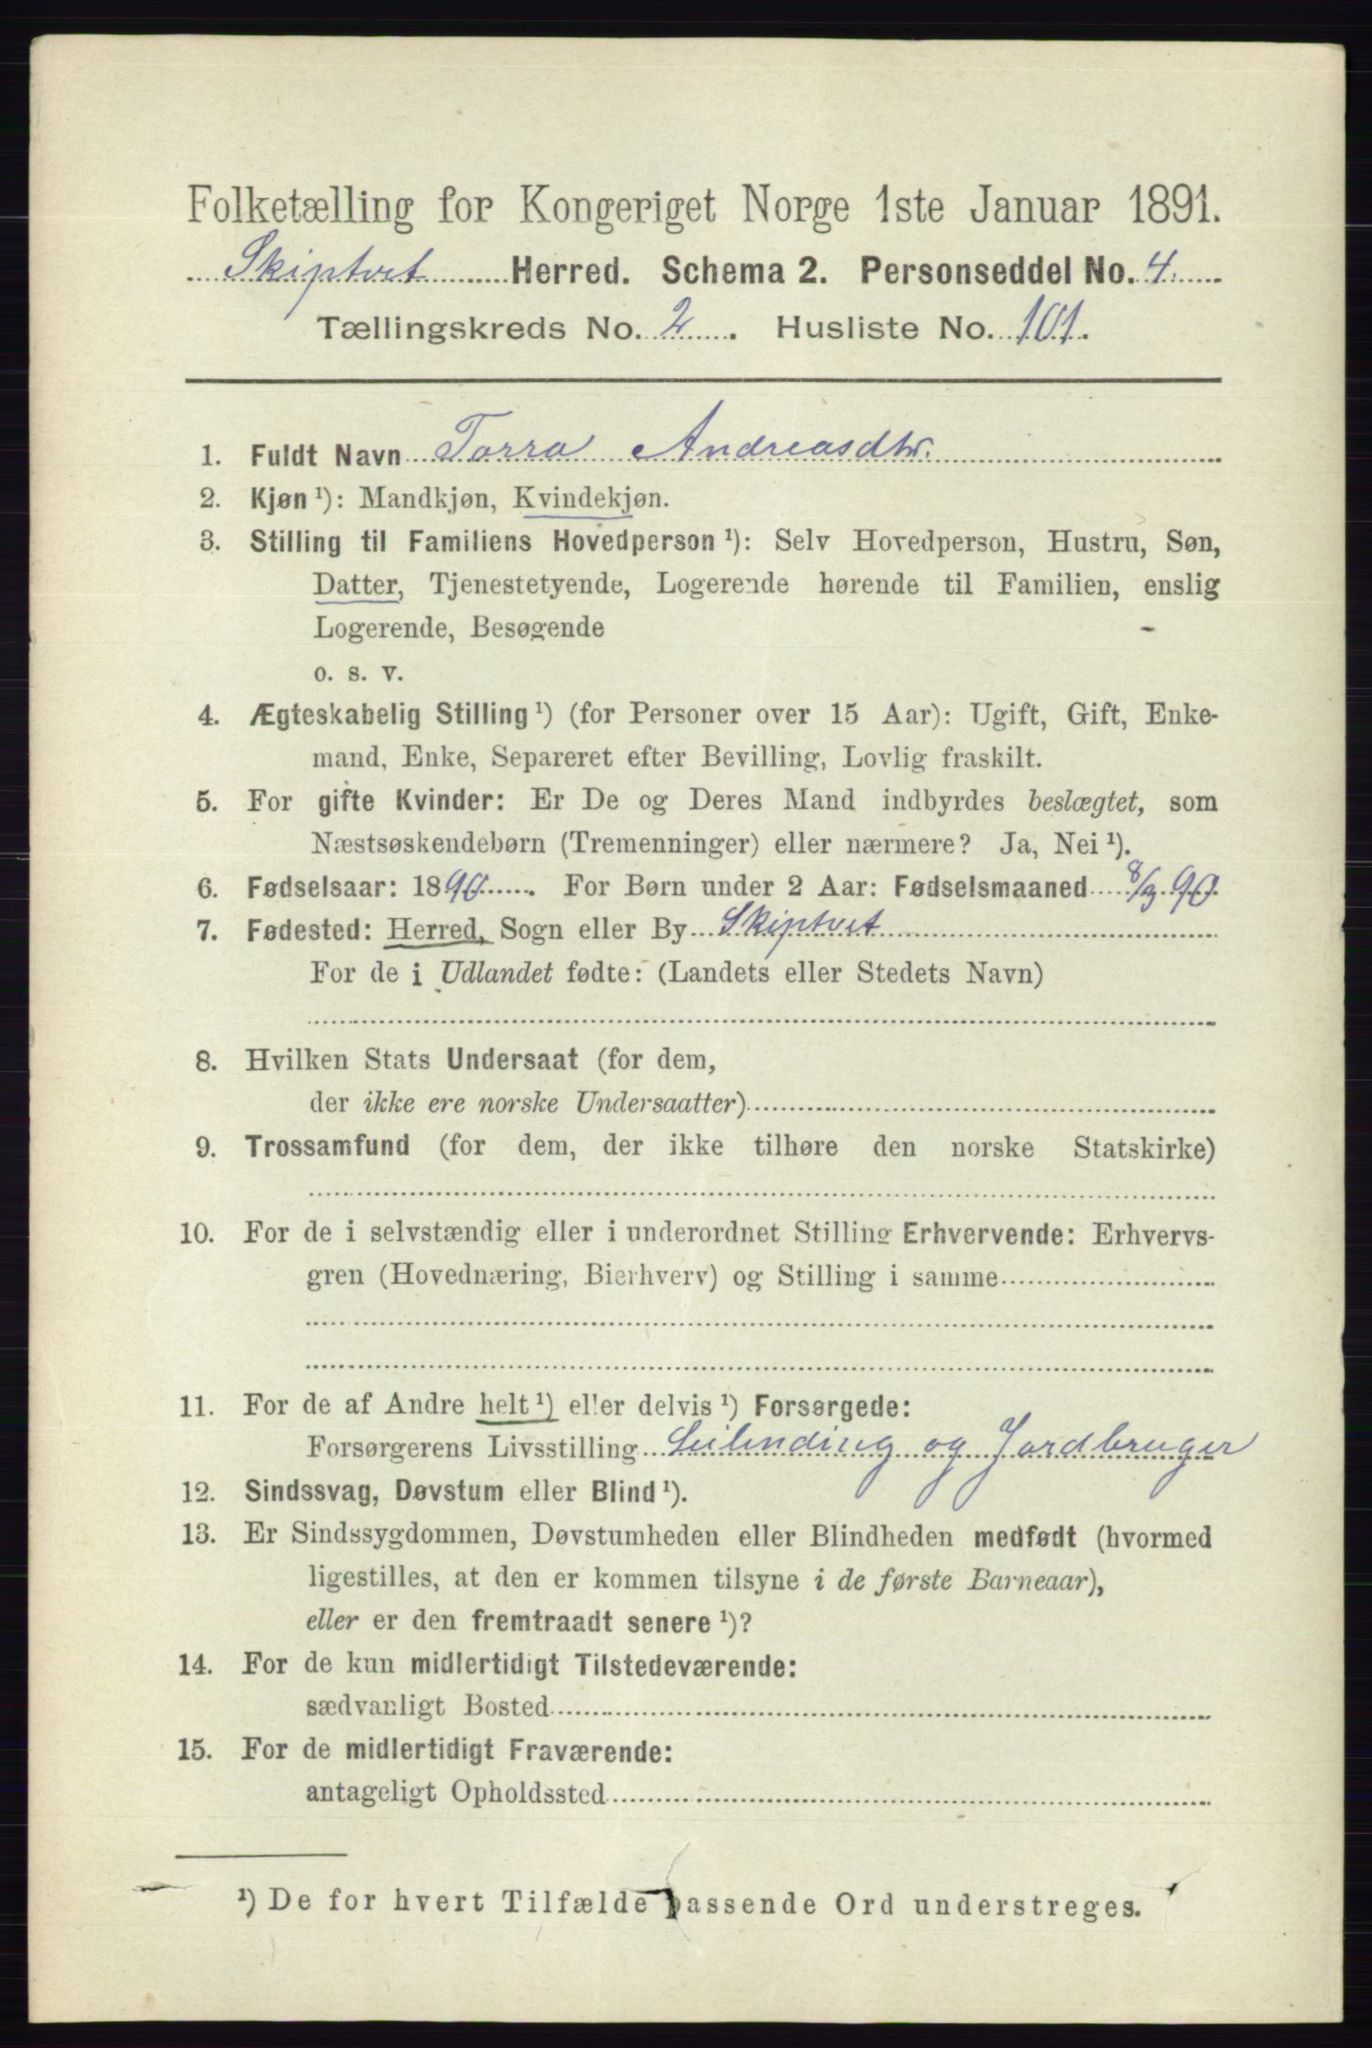 Folketælling for Kongeriget Norge 1ste Januar 1891.
Skiptvet Herred. Schema 2. Personseddel No. 4.
Tællingskreds No. 2. Husliste No. 101.
1. Fuldt Navn Torra Andreasdtr.
2. Kjøn ¹): Mandkjøn, Kvindekjøn.
3. Stilling til Familiens Hovedperson ¹): Selv Hovedperson, Hustru, Søn,
Datter, Tjenestetyende, Logerende hørende til Familien, enslig
Logerende, Besøgende
o. s. v.
4. Ægteskabelig Stilling ¹) (for Personer over 15 Aar): Ugift, Gift, Enke-
mand, Enke, Separeret efter Bevilling, Lovlig fraskilt.
5. For gifte Kvinder: Er De og Deres Mand indbyrdes beslægtet, som
Næstsøskendebørn (Tremenninger) eller nærmere? Ja, Nei ¹).
6. Fødselsaar: 1890. For Børn under 2 Aar: Fødselsmaaned 8/3 90
7. Fødested: Herred, Sogn eller By Skiptvet
For de i Udlandet fødte: (Landets eller Stedets Navn)
8. Hvilken Stats Undersaat (for dem,
der ikke ere norske Undersaatter)
9. Trossamfund (for dem, der ikke tilhøre den norske Statskirke)
10. For de i selvstændig eller i underordnet Stilling Erhvervende: Erhvervs-
gren (Hovednæring, Bierhverv) og Stilling i samme
11. For de af Andre helt ¹) eller delvis ¹) Forsørgede:
Forsørgerens Livsstilling Leilending og Jordbruger
12. Sindssvag, Døvstum eller Blind ¹).
13. Er Sindssygdommen, Døvstumheden eller Blindheden medfødt (hvormed
ligestilles, at den er kommen tilsyne i de første Barneaar),
eller er den fremtraadt senere ¹)?
14. For de kun midlertidigt Tilstedeværende:
sædvanligt Bosted
15. For de midlertidigt Fraværende:
antageligt Opholdssted
¹) De for hvert Tilfælde passende Ord understreges.